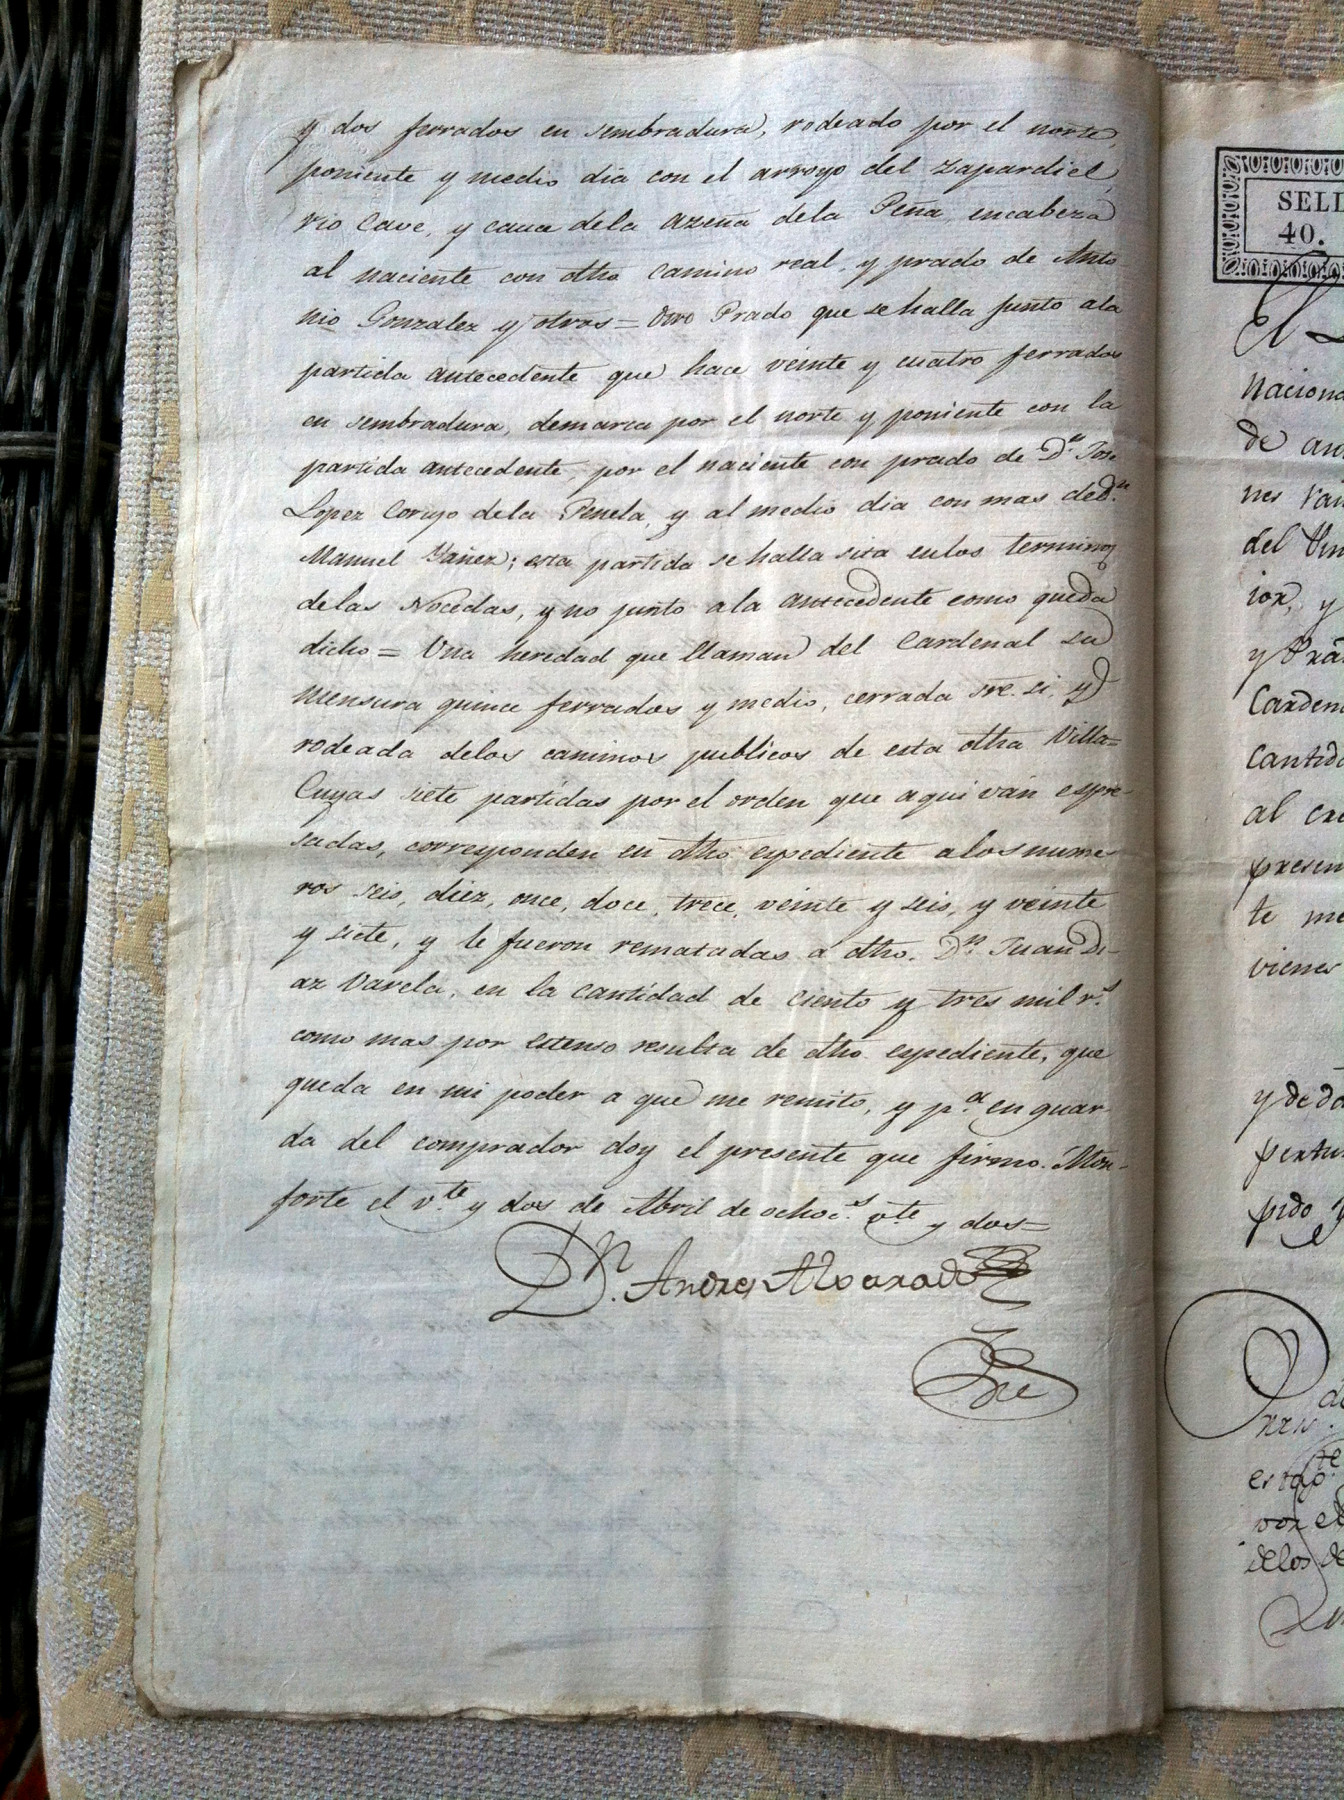 y dos ferrados en sembradura, rodeado por el norte,
poniente y medio dia con el arroyo del Zapardiel,
rio Cave, y cauce dela azena dela Peña, encabeza
al naciente con dho camino real, y prado de Anto
nio Gonzalez y otros = Otro Prado que se halla junto ala
partida antecedente que hace veinte y cuatro ferrados
en sembradura, demarca por el norte y poniente con la
partida antecedente, por el naciente con prado de D.n Jose
Lopez Coruyo dela Penela, y al medio dia con mas de D.n
Manuel Yañez; esta partida se halla sita enlos terminos
delas Nocedas, y no junto ala antecedente como queda
dicho = Una heredad que llaman del Cardenal su
mensura quince ferrados y medio, cerrada sre. si, y
rodeada delos caminos publicos de esta dha Villa=
Cuyas siete partidas por el orden que aqui ván espre-
sadas, corresponden en dho espediente alos nume-
ros seis, diez, once, doce, trece, veinte y seis, y veinte
y siete, y le fueron rematadas a dho. D.n Juan Di-
az Varela, en la cantidad de ciento y tres mil r.s
como mas por estenso resulta de dho espediente, que
queda en mi poder a que me remito, y p.a en guar-
da del comprador doy el presente que firmo. Mon-
forte el v.te y dos de Abril de ochoc.s v.te y dos=
D.n Andres Alvarado
SELL
40.
El
Naciona
de an
nes va
del
ior, y
y
Cardena
Cantida
al cre
presen
te me
vienes
y de do
pertu
pido
de
es
por el
delos de